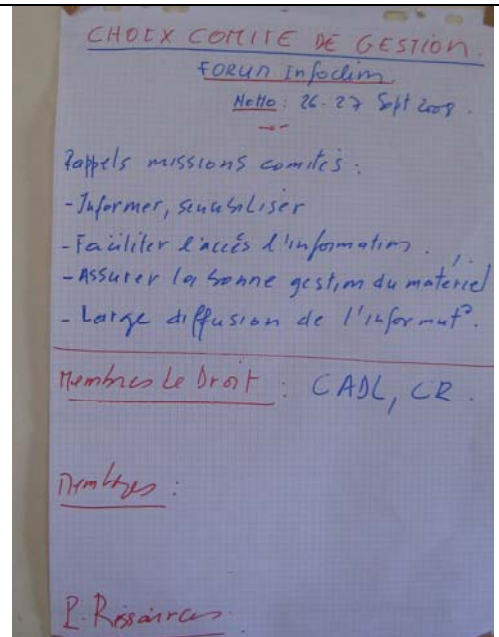 CHOIX COMITE DE GESTION.
FORUM Infoclim
Notto : 26-27 Sept 2008.
Rappels missions comités :
- Informer, sensibiliser
- Faciliter l'accès l'information.
- Assurer la bonne gestion du matériel
- Large diffusion de l'informat°.
Membres de Droit : CADL, CR.
Membres :
P. Ressources